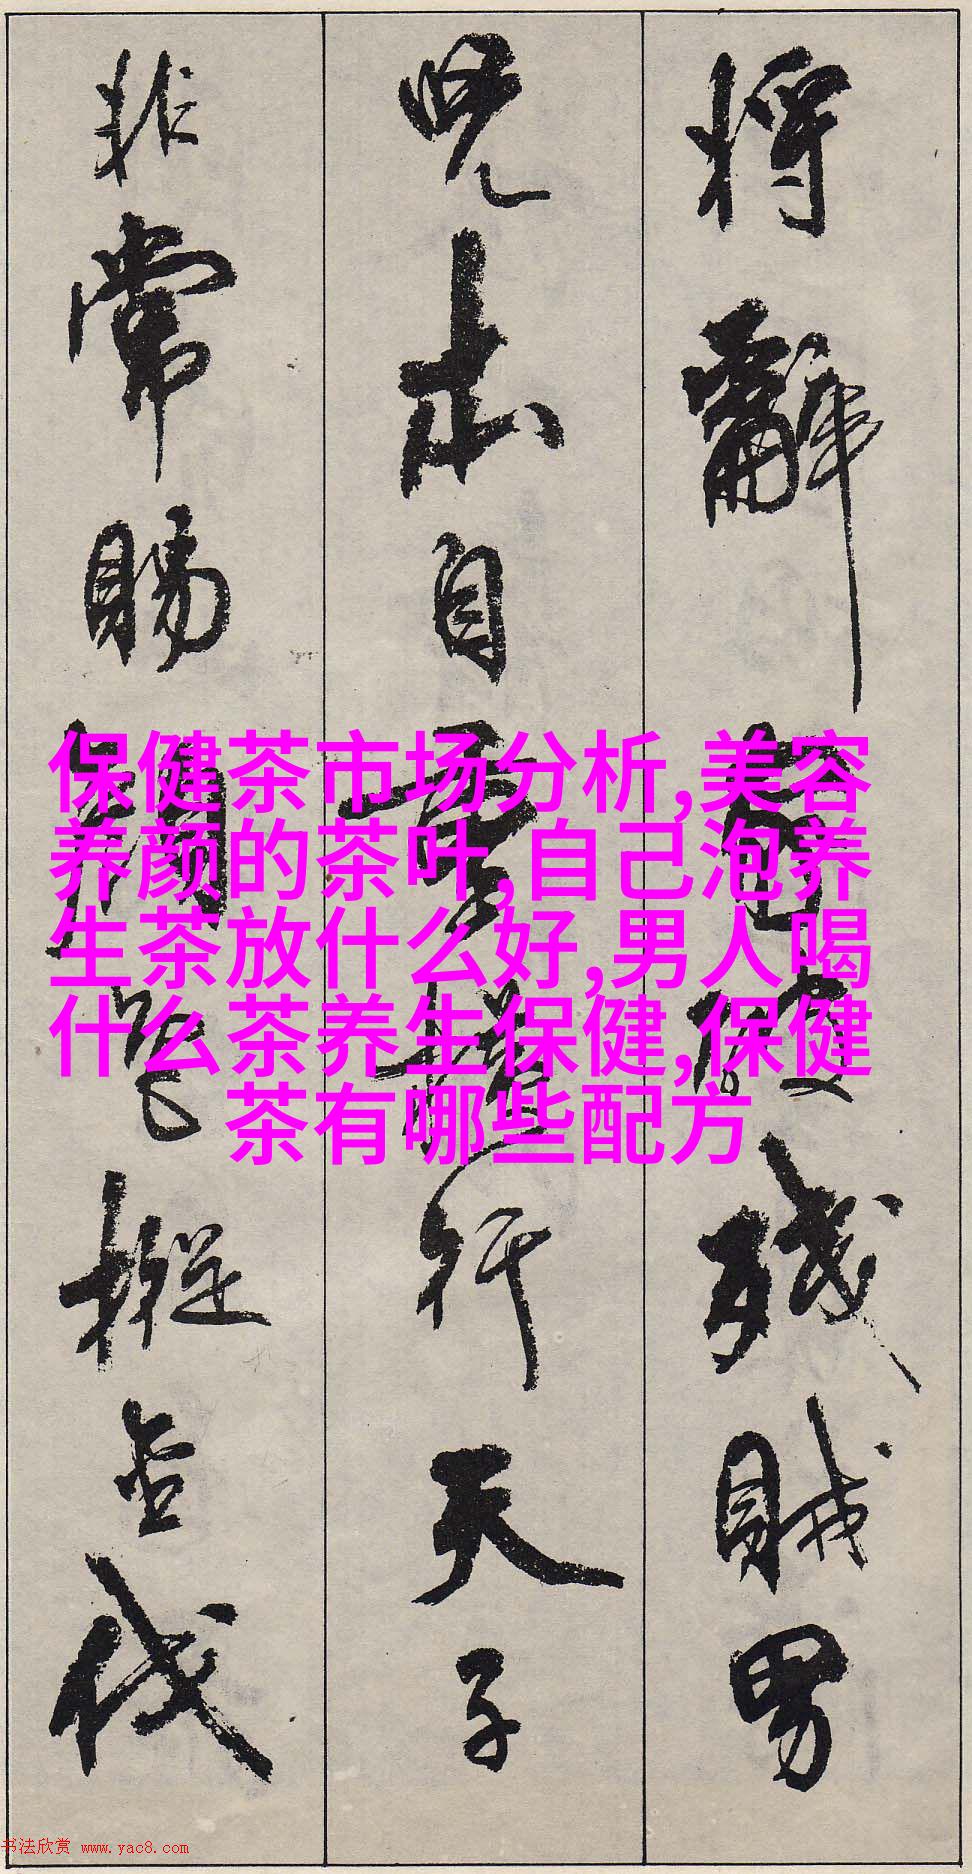 将辭家破殘賊男
兒本自重橫行天子
非常賜顏色摐金伐
保健茶市场分析,美容
养颜的茶叶,自己泡养
生茶放什么好,男人喝
什么茶养生保健,保健
茶有哪些配方
书法欣赏 www.yac8.com